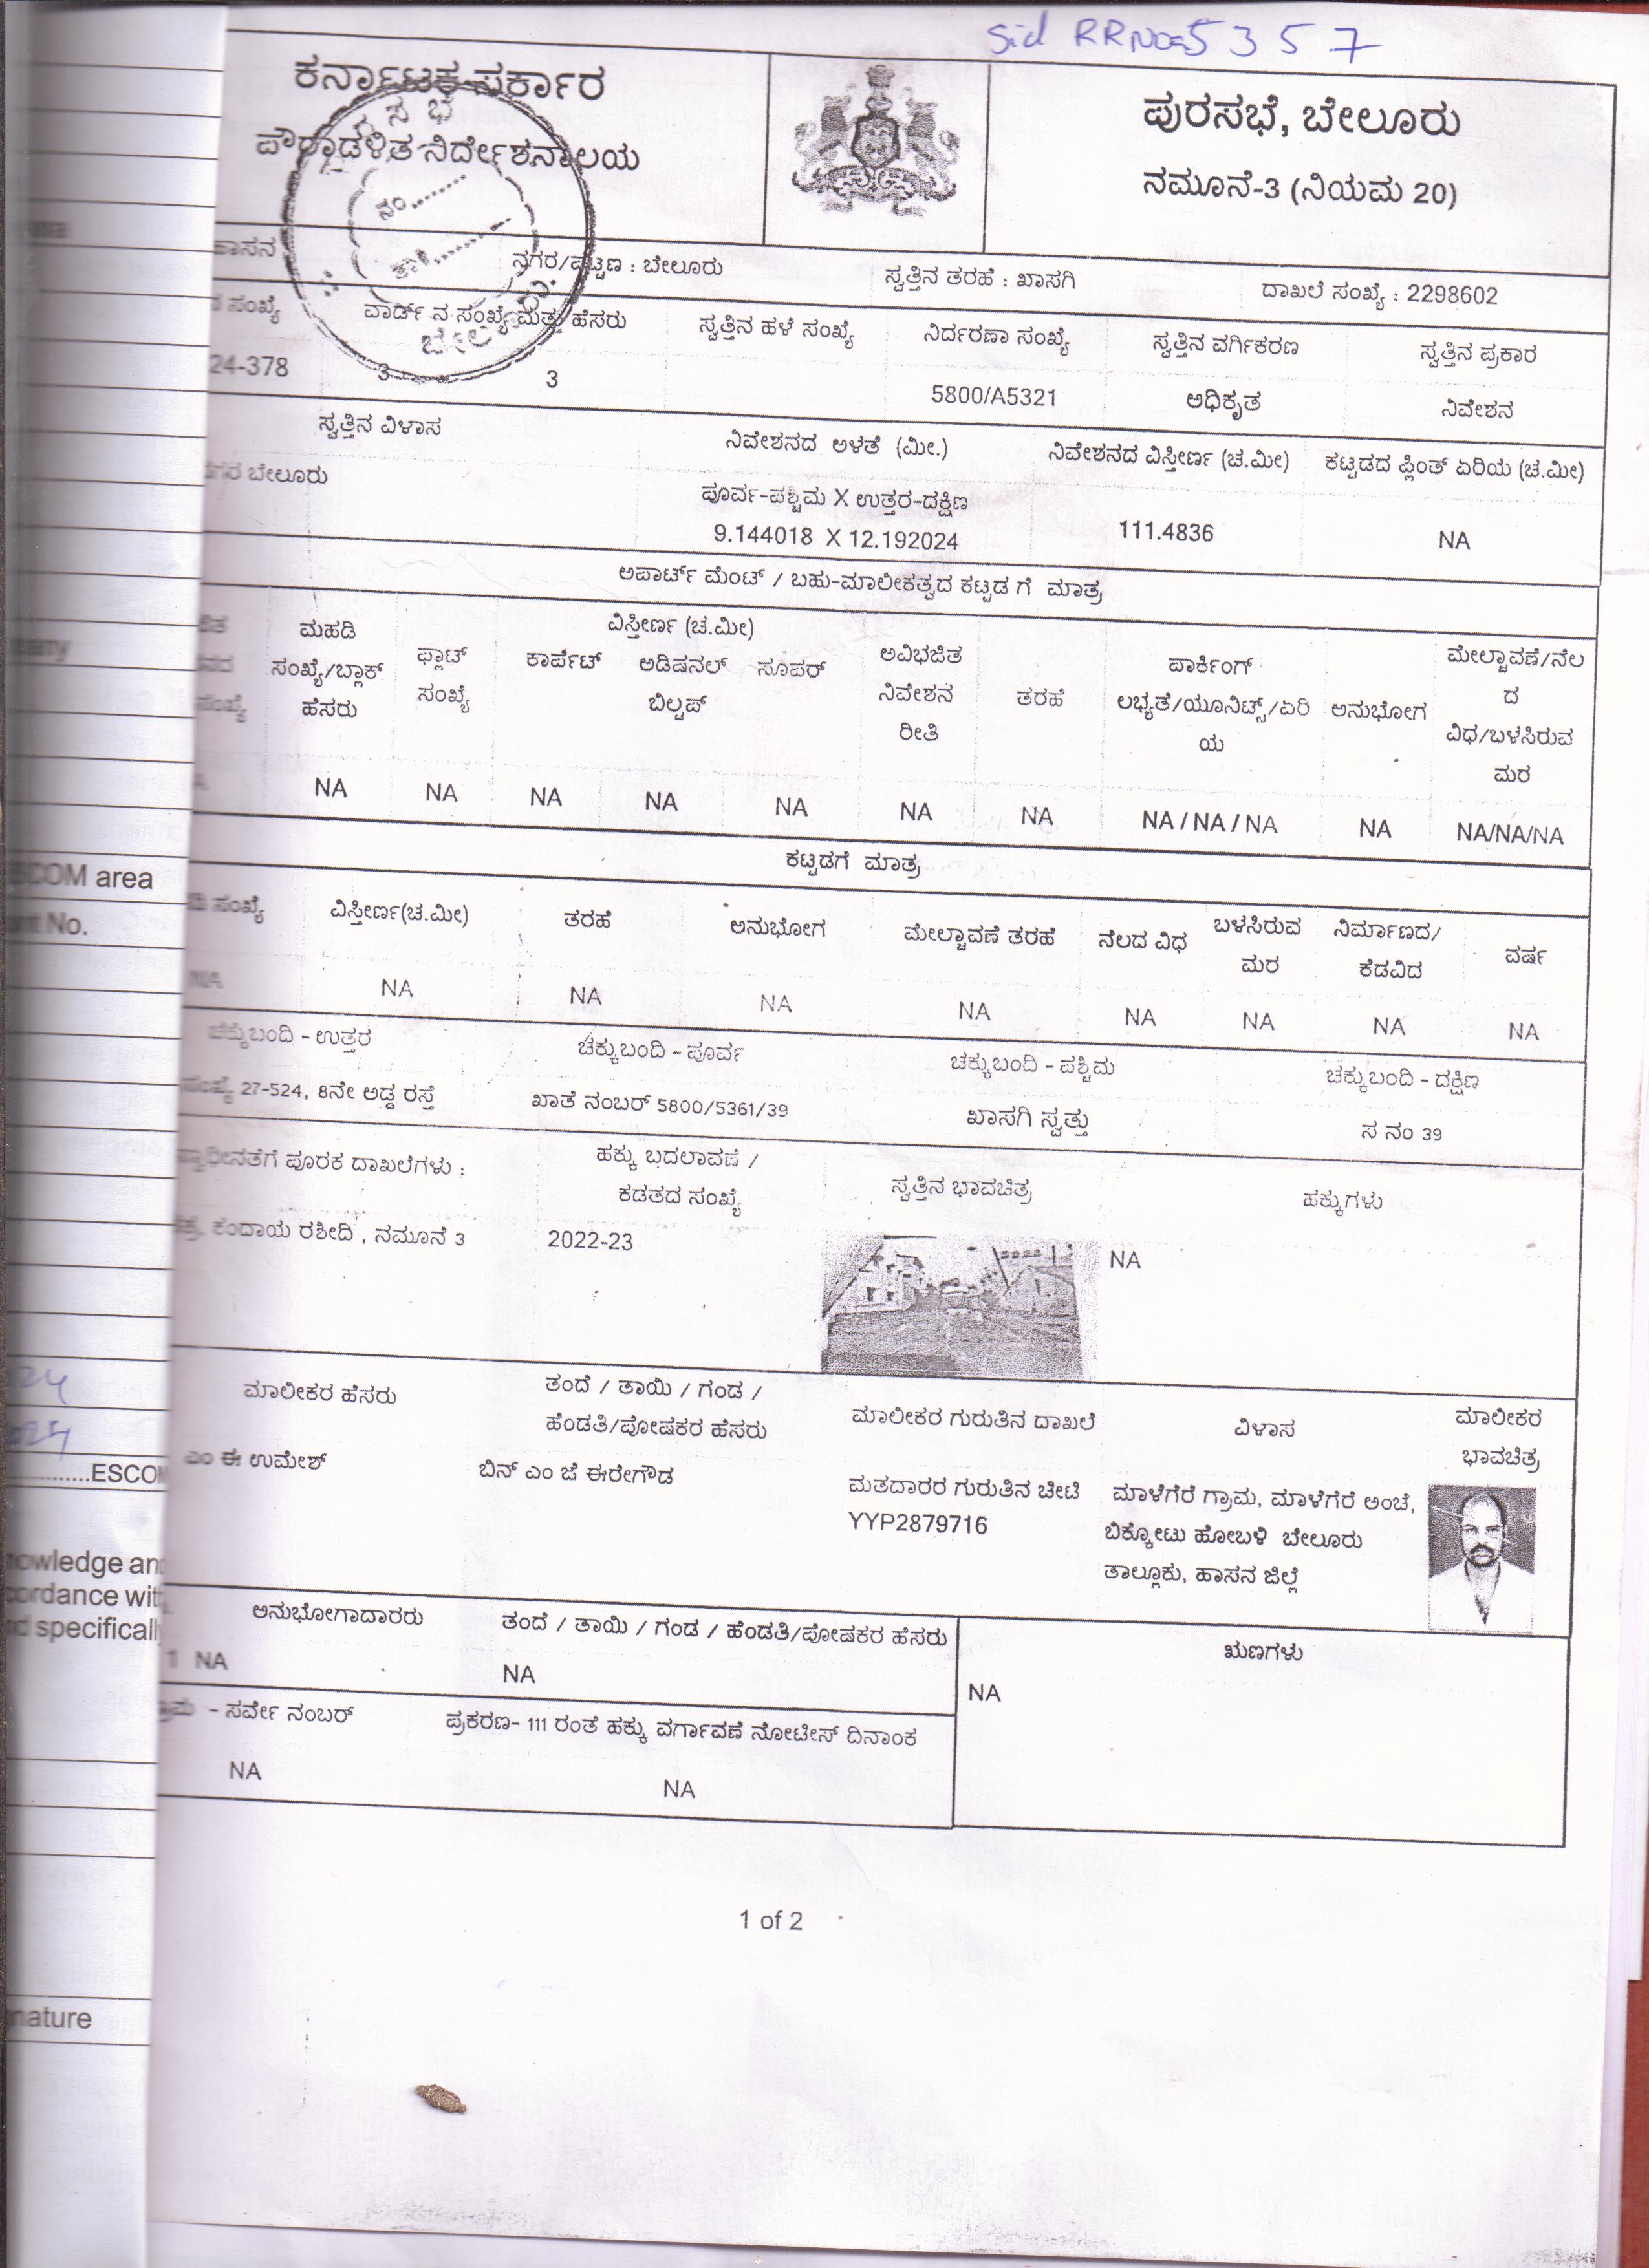 Sid RRNo=5357
ಕರ್ನಾಟಕ ಸರ್ಕಾರ
ಪೌರಾಡಳಿತ ನಿರ್ದೇಶನಾಲಯ
ಪುರಸಭೆ, ಬೇಲೂರು
ನಮೂನೆ-3 (ನಿಯಮ 20)
ಹಾಸನ ನಗರ/ಪಟ್ಟಣ : ಬೇಲೂರು ಸ್ವತ್ತಿನ ತರಹೆ : ಖಾಸಗಿ ದಾಖಲೆ ಸಂಖ್ಯೆ : 2298602
ಸಂಖ್ಯೆ ವಾರ್ಡ್ ನ ಸಂಖ್ಯೆ ಮತ್ತು ಹೆಸರು ಸ್ವತ್ತಿನ ಹಳೆ ಸಂಖ್ಯೆ ನಿರ್ದರಣಾ ಸಂಖ್ಯೆ ಸ್ವತ್ತಿನ ವರ್ಗಿಕರಣ ಸ್ವತ್ತಿನ ಪ್ರಕಾರ
24-378 3 3 5800/A5321 ಅಧಿಕೃತ ನಿವೇಶನ
ಸ್ವತ್ತಿನ ವಿಳಾಸ ನಿವೇಶನದ ಅಳತೆ (ಮೀ.) ನಿವೇಶನದ ವಿಸ್ತೀರ್ಣ (ಚ.ಮೀ) ಕಟ್ಟಡದ ಪ್ಲಿಂತ್ ಏರಿಯ (ಚ.ಮೀ)
ಬೇಲೂರು ಪೂರ್ವ-ಪಶ್ಚಿಮ X ಉತ್ತರ-ದಕ್ಷಿಣ
9.144018 X 12.192024 111.4836 NA
ಅಪಾರ್ಟ್ ಮೆಂಟ್ / ಬಹು-ಮಾಲೀಕತ್ವದ ಕಟ್ಟಡ ಗೆ ಮಾತ್ರ
ವಿಸ್ತೀರ್ಣ (ಚ.ಮೀ)
ಮಹಡಿ
ಸಂಖ್ಯೆ/ಬ್ಲಾಕ್
ಹೆಸರು
ಫ್ಲಾಟ್
ಸಂಖ್ಯೆ
ಕಾರ್ಪೆಟ್
ಅಡಿಷನಲ್
ಬಿಲ್ಟಪ್
ಸೂಪರ್
ಅವಿಭಜಿತ
ನಿವೇಶನ
ರೀತಿ
ತರಹೆ
ಪಾರ್ಕಿಂಗ್
ಲಭ್ಯತೆ/ಯೂನಿಟ್ಸ್/ಏರಿ
ಯ
ಅನುಭೋಗ
ಮೇಲ್ಚಾವಣೆ/ನೆಲ
ದ
ವಿಧ/ಬಳಸಿರುವ
ಮರ
NA NA NA NA NA NA NA NA / NA / NA NA NA/NA/NA
ಕಟ್ಟಡಗೆ ಮಾತ್ರ
ಸಂಖ್ಯೆ ವಿಸ್ತೀರ್ಣ(ಚ.ಮೀ) ತರಹೆ ಅನುಭೋಗ ಮೇಲ್ಚಾವಣೆ ತರಹೆ ನೆಲದ ವಿಧ
ಬಳಸಿರುವ
ಮರ
ನಿರ್ಮಾಣದ/
ಕೆಡವಿದ
ವರ್ಷ
NA NA NA NA NA NA NA NA NA
ಚೆಕ್ಕುಬಂದಿ - ಉತ್ತರ ಚೆಕ್ಕುಬಂದಿ - ಪೂರ್ವ ಚೆಕ್ಕುಬಂದಿ - ಪಶ್ಚಿಮ ಚೆಕ್ಕುಬಂದಿ - ದಕ್ಷಿಣ
ಸಂಖ್ಯೆ 27-524, 8ನೇ ಅಡ್ಡ ರಸ್ತೆ ಖಾತೆ ನಂಬರ್ 5800/5361/39 ಖಾಸಗಿ ಸ್ವತ್ತು ಸ ನಂ 39
ಸ್ವಾಧೀನತೆಗೆ ಪೂರಕ ದಾಖಲೆಗಳು :
ಹಕ್ಕು ಬದಲಾವಣೆ /
ಕಡತದ ಸಂಖ್ಯೆ
ಸ್ವತ್ತಿನ ಭಾವಚಿತ್ರ ಹಕ್ಕುಗಳು
ಕಂದಾಯ ರಶೀದಿ , ನಮೂನೆ 3 2022-23 NA
ಮಾಲೀಕರ ಹೆಸರು
ತಂದೆ / ತಾಯಿ / ಗಂಡ /
ಹೆಂಡತಿ/ಪೋಷಕರ ಹೆಸರು
ಮಾಲೀಕರ ಗುರುತಿನ ದಾಖಲೆ ವಿಳಾಸ
ಮಾಲೀಕರ
ಭಾವಚಿತ್ರ
ಎಂ ಈ ಉಮೇಶ್ ಬಿನ್ ಎಂ ಜೆ ಈರೇಗೌಡ
ಮತದಾರರ ಗುರುತಿನ ಚೀಟಿ
YYP2879716
ಮಾಳೆಗೆರೆ ಗ್ರಾಮ, ಮಾಳೆಗೆರೆ ಅಂಚೆ,
ಬಿಕ್ಕೋಟು ಹೋಬಳಿ ಬೇಲೂರು
ತಾಲ್ಲೂಕು, ಹಾಸನ ಜಿಲ್ಲೆ
ಅನುಭೋಗಾದಾರರು ತಂದೆ / ತಾಯಿ / ಗಂಡ / ಹೆಂಡತಿ/ಪೋಷಕರ ಹೆಸರು ಋಣಗಳು
1 NA NA NA
- ಸರ್ವೇ ನಂಬರ್ ಪ್ರಕರಣ- 111 ರಂತೆ ಹಕ್ಕು ವರ್ಗಾವಣೆ ನೋಟೀಸ್ ದಿನಾಂಕ
NA NA
1 of 2
ESCOM area
No.
ESCOM
specifically